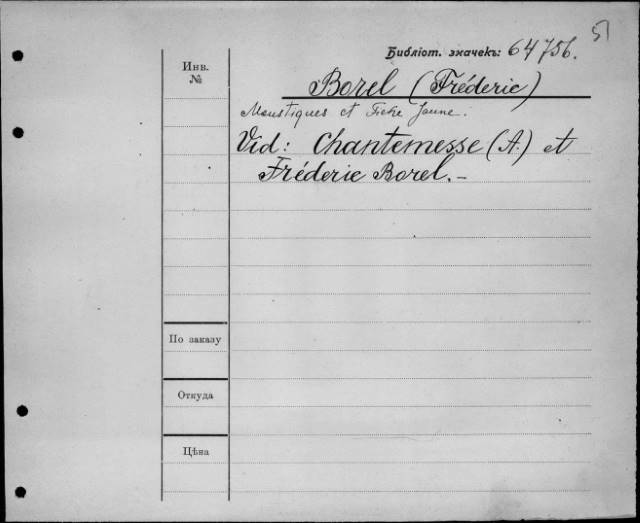 51
Библіот. значекъ: 64756.
Инв.
№
Borel (Fréderic)
Moustiques et Fièvre Jaune.
Vid: Chantemesse (A.) et
Fréderic Borel.–
По заказу
Откуда
Цѣна